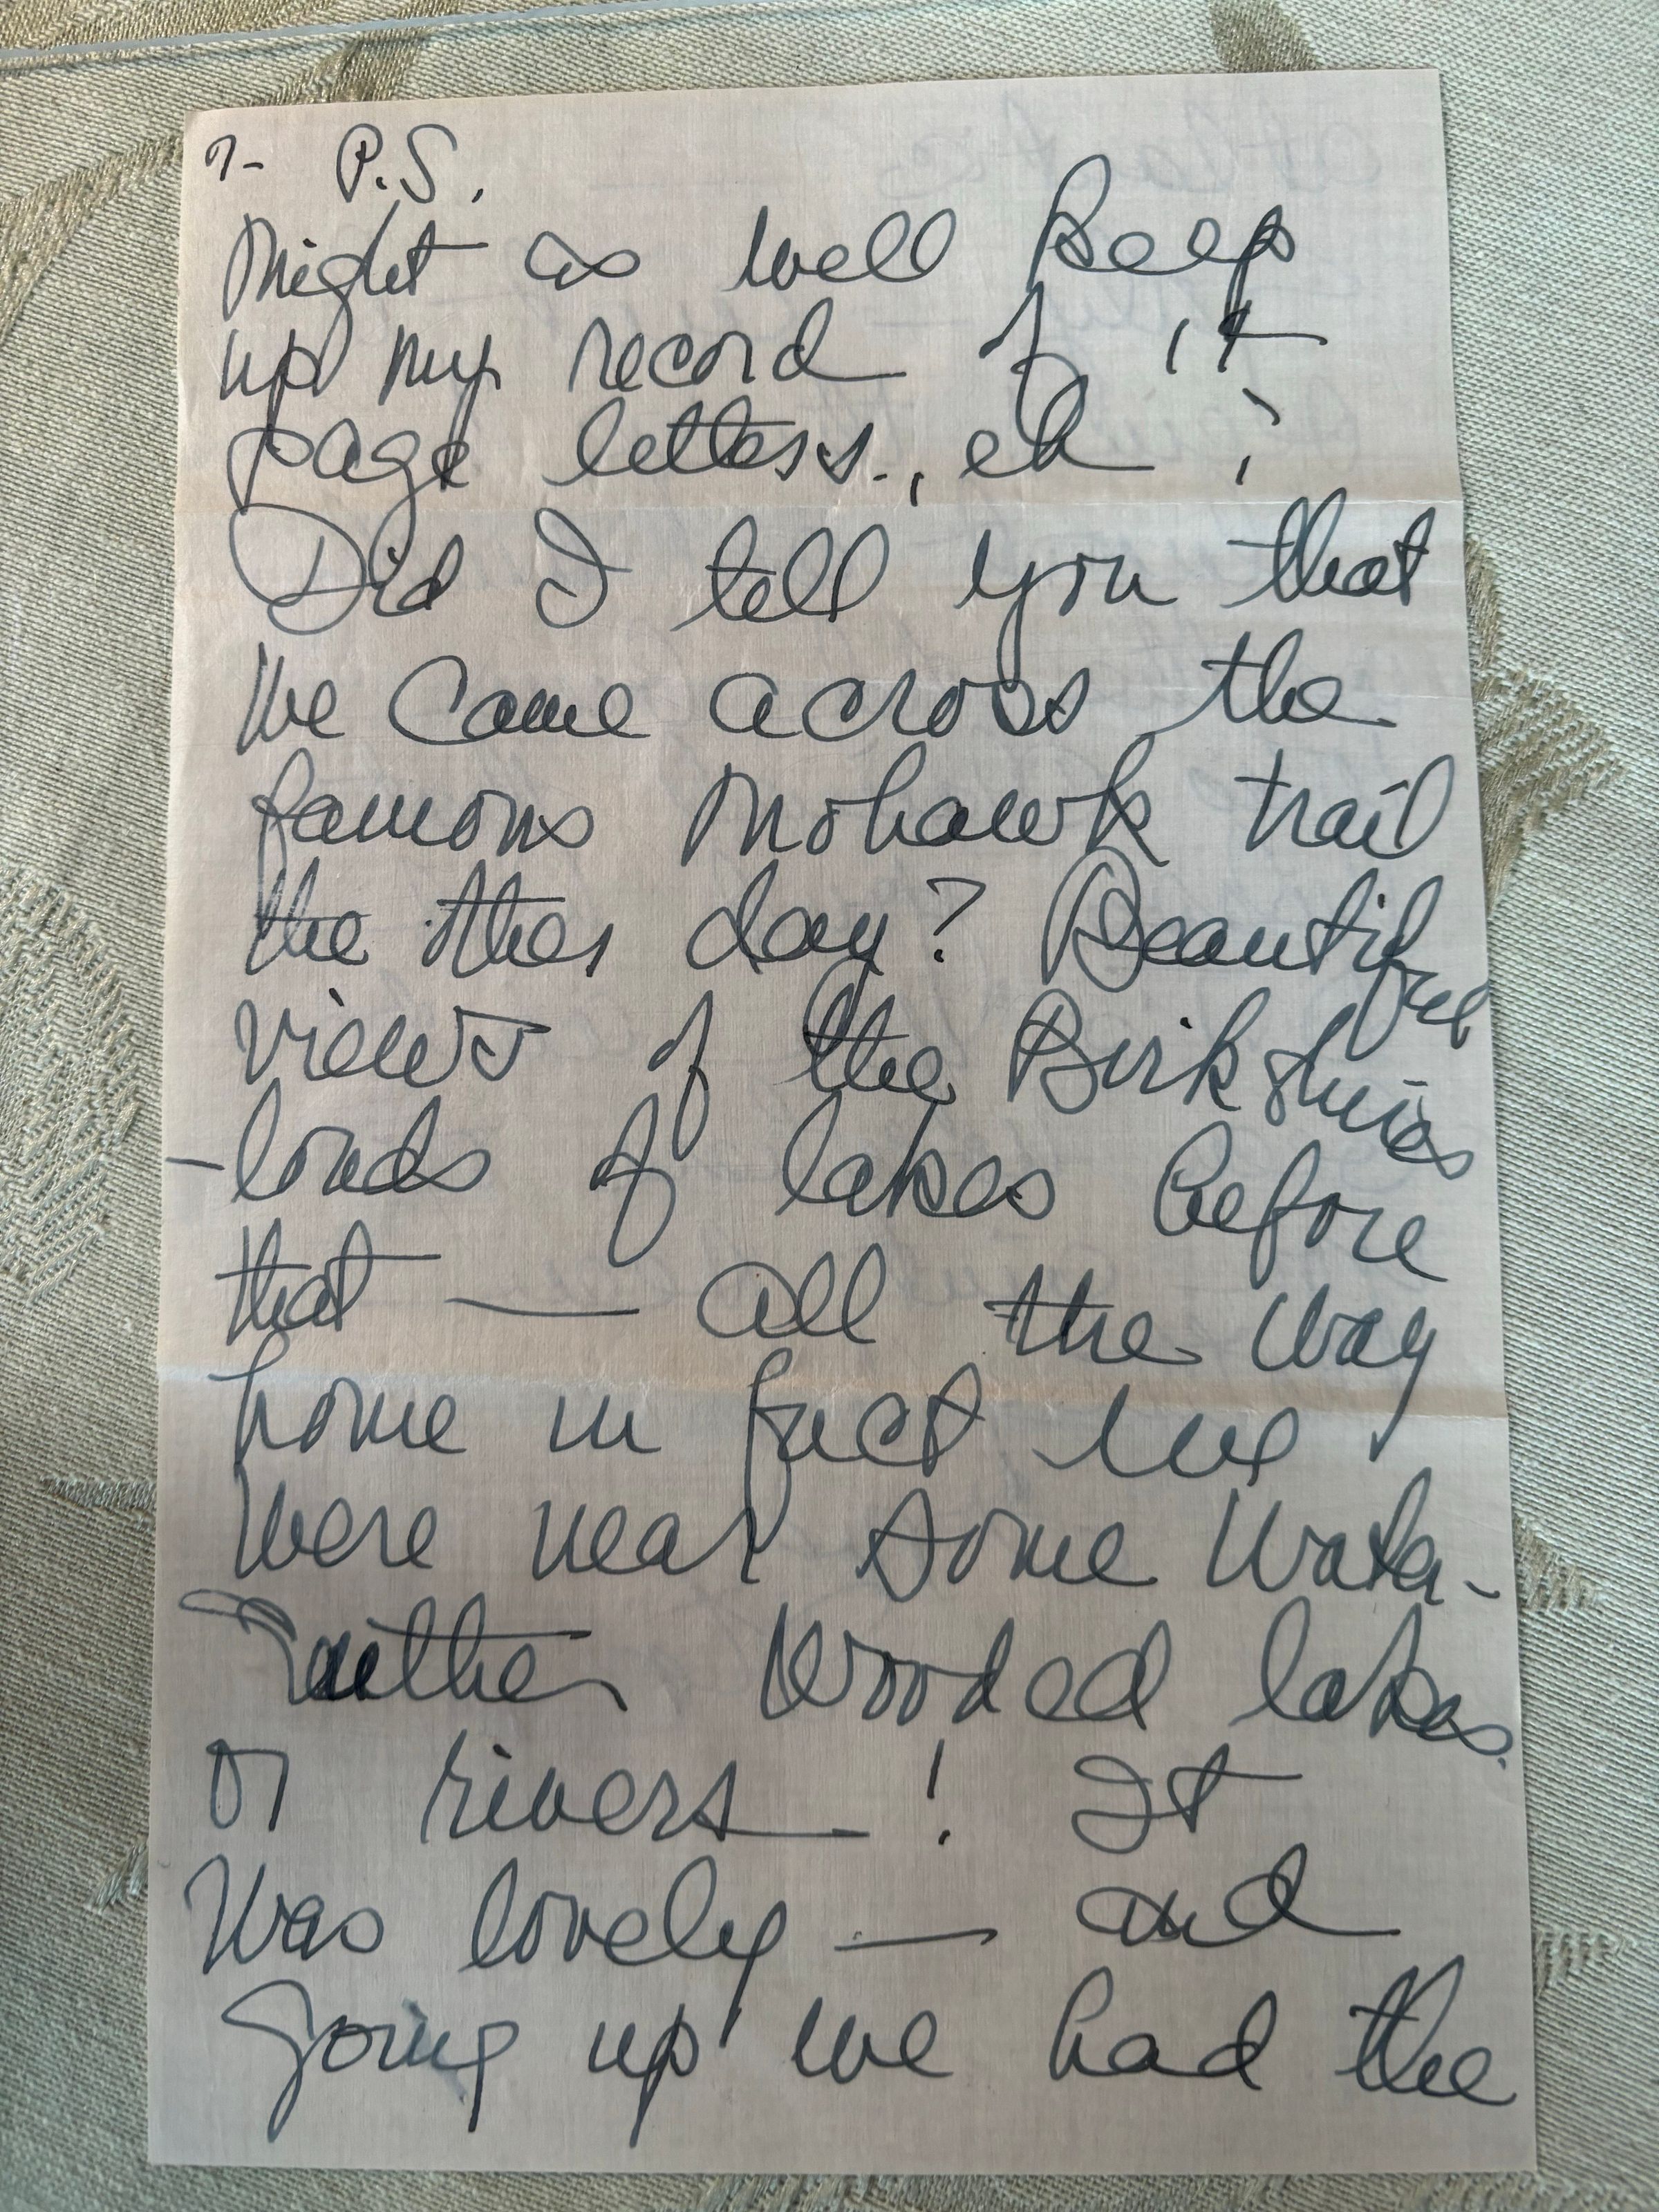 7- P.S.
Might as well keep
up my record of 17
page letters., eh ?
Did I tell you that
we came across the
famous Mohawk trail
the other day? Beautiful
views of the Birkshires
- loads of lakes before
that — all the way
home in fact we
were near some water-
either wooded lakes
or rivers ! It
was lovely — and
going up we had the